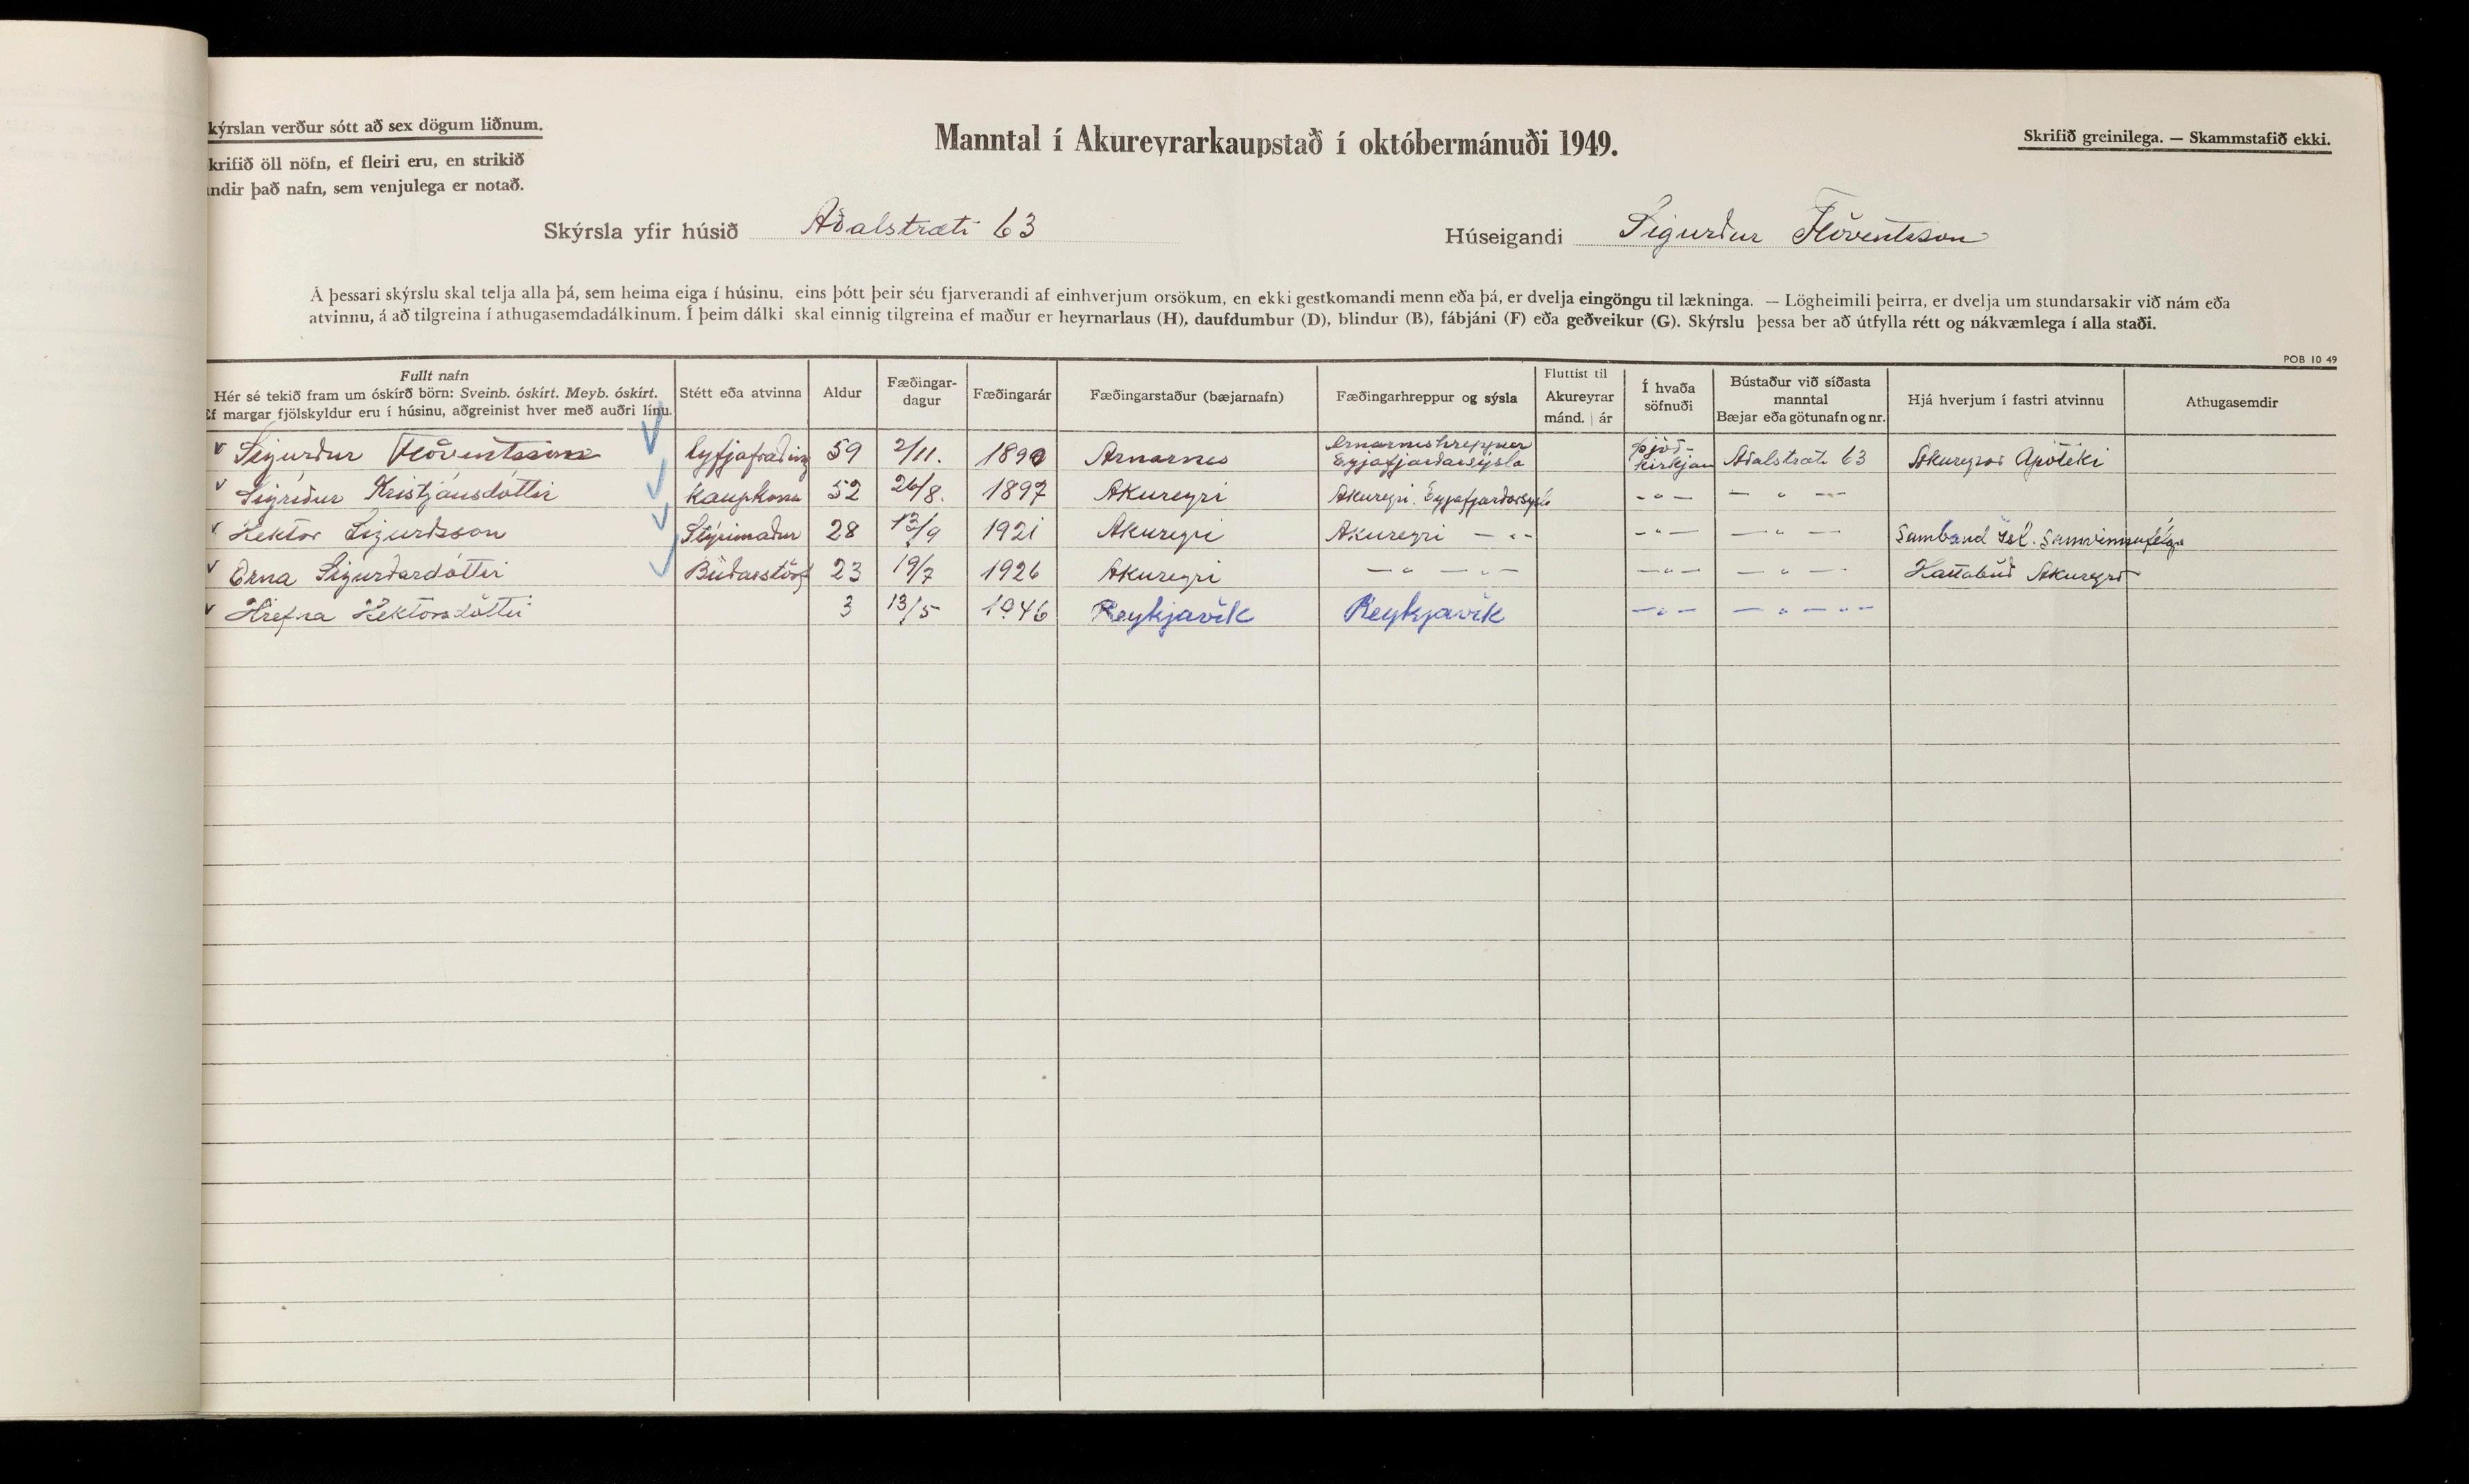 kýrslan verður sótt að sex dögum liðnum.
krifið öll nöfn, ef fleiri eru, en strikið
undir það nafn, sem venjulega er notað.
Manntal í Akureyrarkaupstað í októbermánuði 1949.
Skrifið greinilega. — Skammstafið ekki.
Skýrsla yfir húsið Aðalstræti 63
Húseigandi Sigurður Flóventsson
Á þessari skýrslu skal telja alla þá, sem heima eiga í húsinu, eins þótt þeir séu fjarverandi af einhverjum orsökum, en ekki gestkomandi menn eða þá, er dvelja eingöngu til lækninga. — Lögheimili þeirra, er dvelja um stundarsakir við nám eða
atvinnu, á að tilgreina í athugasemdadálkinum. Í þeim dálki skal einnig tilgreina ef maður er heyrnarlaus (H), daufdumbur (D), blindur (B), fábjáni (F) eða geðveikur (G). Skýrslu þessa ber að útfylla rétt og nákvæmlega í alla staði.
POB 10 49
Fullt nafn
Hér sé tekið fram um óskírð börn: Sveinb. óskírt. Meyb. óskírt.
Ef margar fjölskyldur eru í húsinu, aðgreinist hver með auðri línu.
Stétt eða atvinna
Aldur
Fæðingar-
dagur
Fæðingarár
Fæðingarstaður (bæjarnafn)
Fæðingarhreppur og sýsla
Fluttist til
Akureyrar
mánd. | ár
Í hvaða
söfnuði
Bústaður við síðasta
manntal
Bæjar eða götunafn og nr.
Hjá hverjum í fastri atvinnu
Athugasemdir
v Sigurður Flóventsson lyfjafræðing 59 2/11. 1890 Arnarnes Arnarneshreppur Eyjafjarðarsýsla Þjóð-kirkjan Aðalstræti 63 Akureyrar Apóteki
v Sigríður Kristjánsdóttir kaupkona 52 26/8. 1897 Akureyri Akureyri. Eyjafjarðarsýsla - " - - " -
v Hektor Sigurðsson Stýrimaður 28 13/9 1921 Akureyri Akureyri - " - - " - - " - Samband Ísl. Samvinnufélga
v Erna Sigurðardóttir Búðarstörf 23 19/7 1926 Akureyri - " - " - - " - - " - Hattabúð Akureyrar
v Hrefna Hektorsdóttir 3 13/5 1946 Reykjavík Reykjavík - " - - " - " -